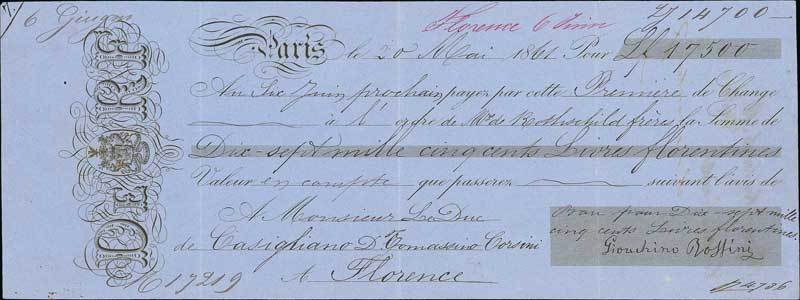 6 Giugno
Florence 6 Juin
14700
Paris le 20 Mai 1861 Pour L 17500
Au Six Juin prochain payez par cette Première de Change
à l'ordre de Mrs de Rothschild frères la Somme de
Dix-sept mille cinq cents Livres florentines
Valeur en compte que passerez suivant l'avis de
A Monsieur Le Duc
de Casigliano Dn Tomassino Corsini
A Florence
No 17219
Bon pour Dix-sept mille
cinq cents Livres florentines.
Giovachino Rossini